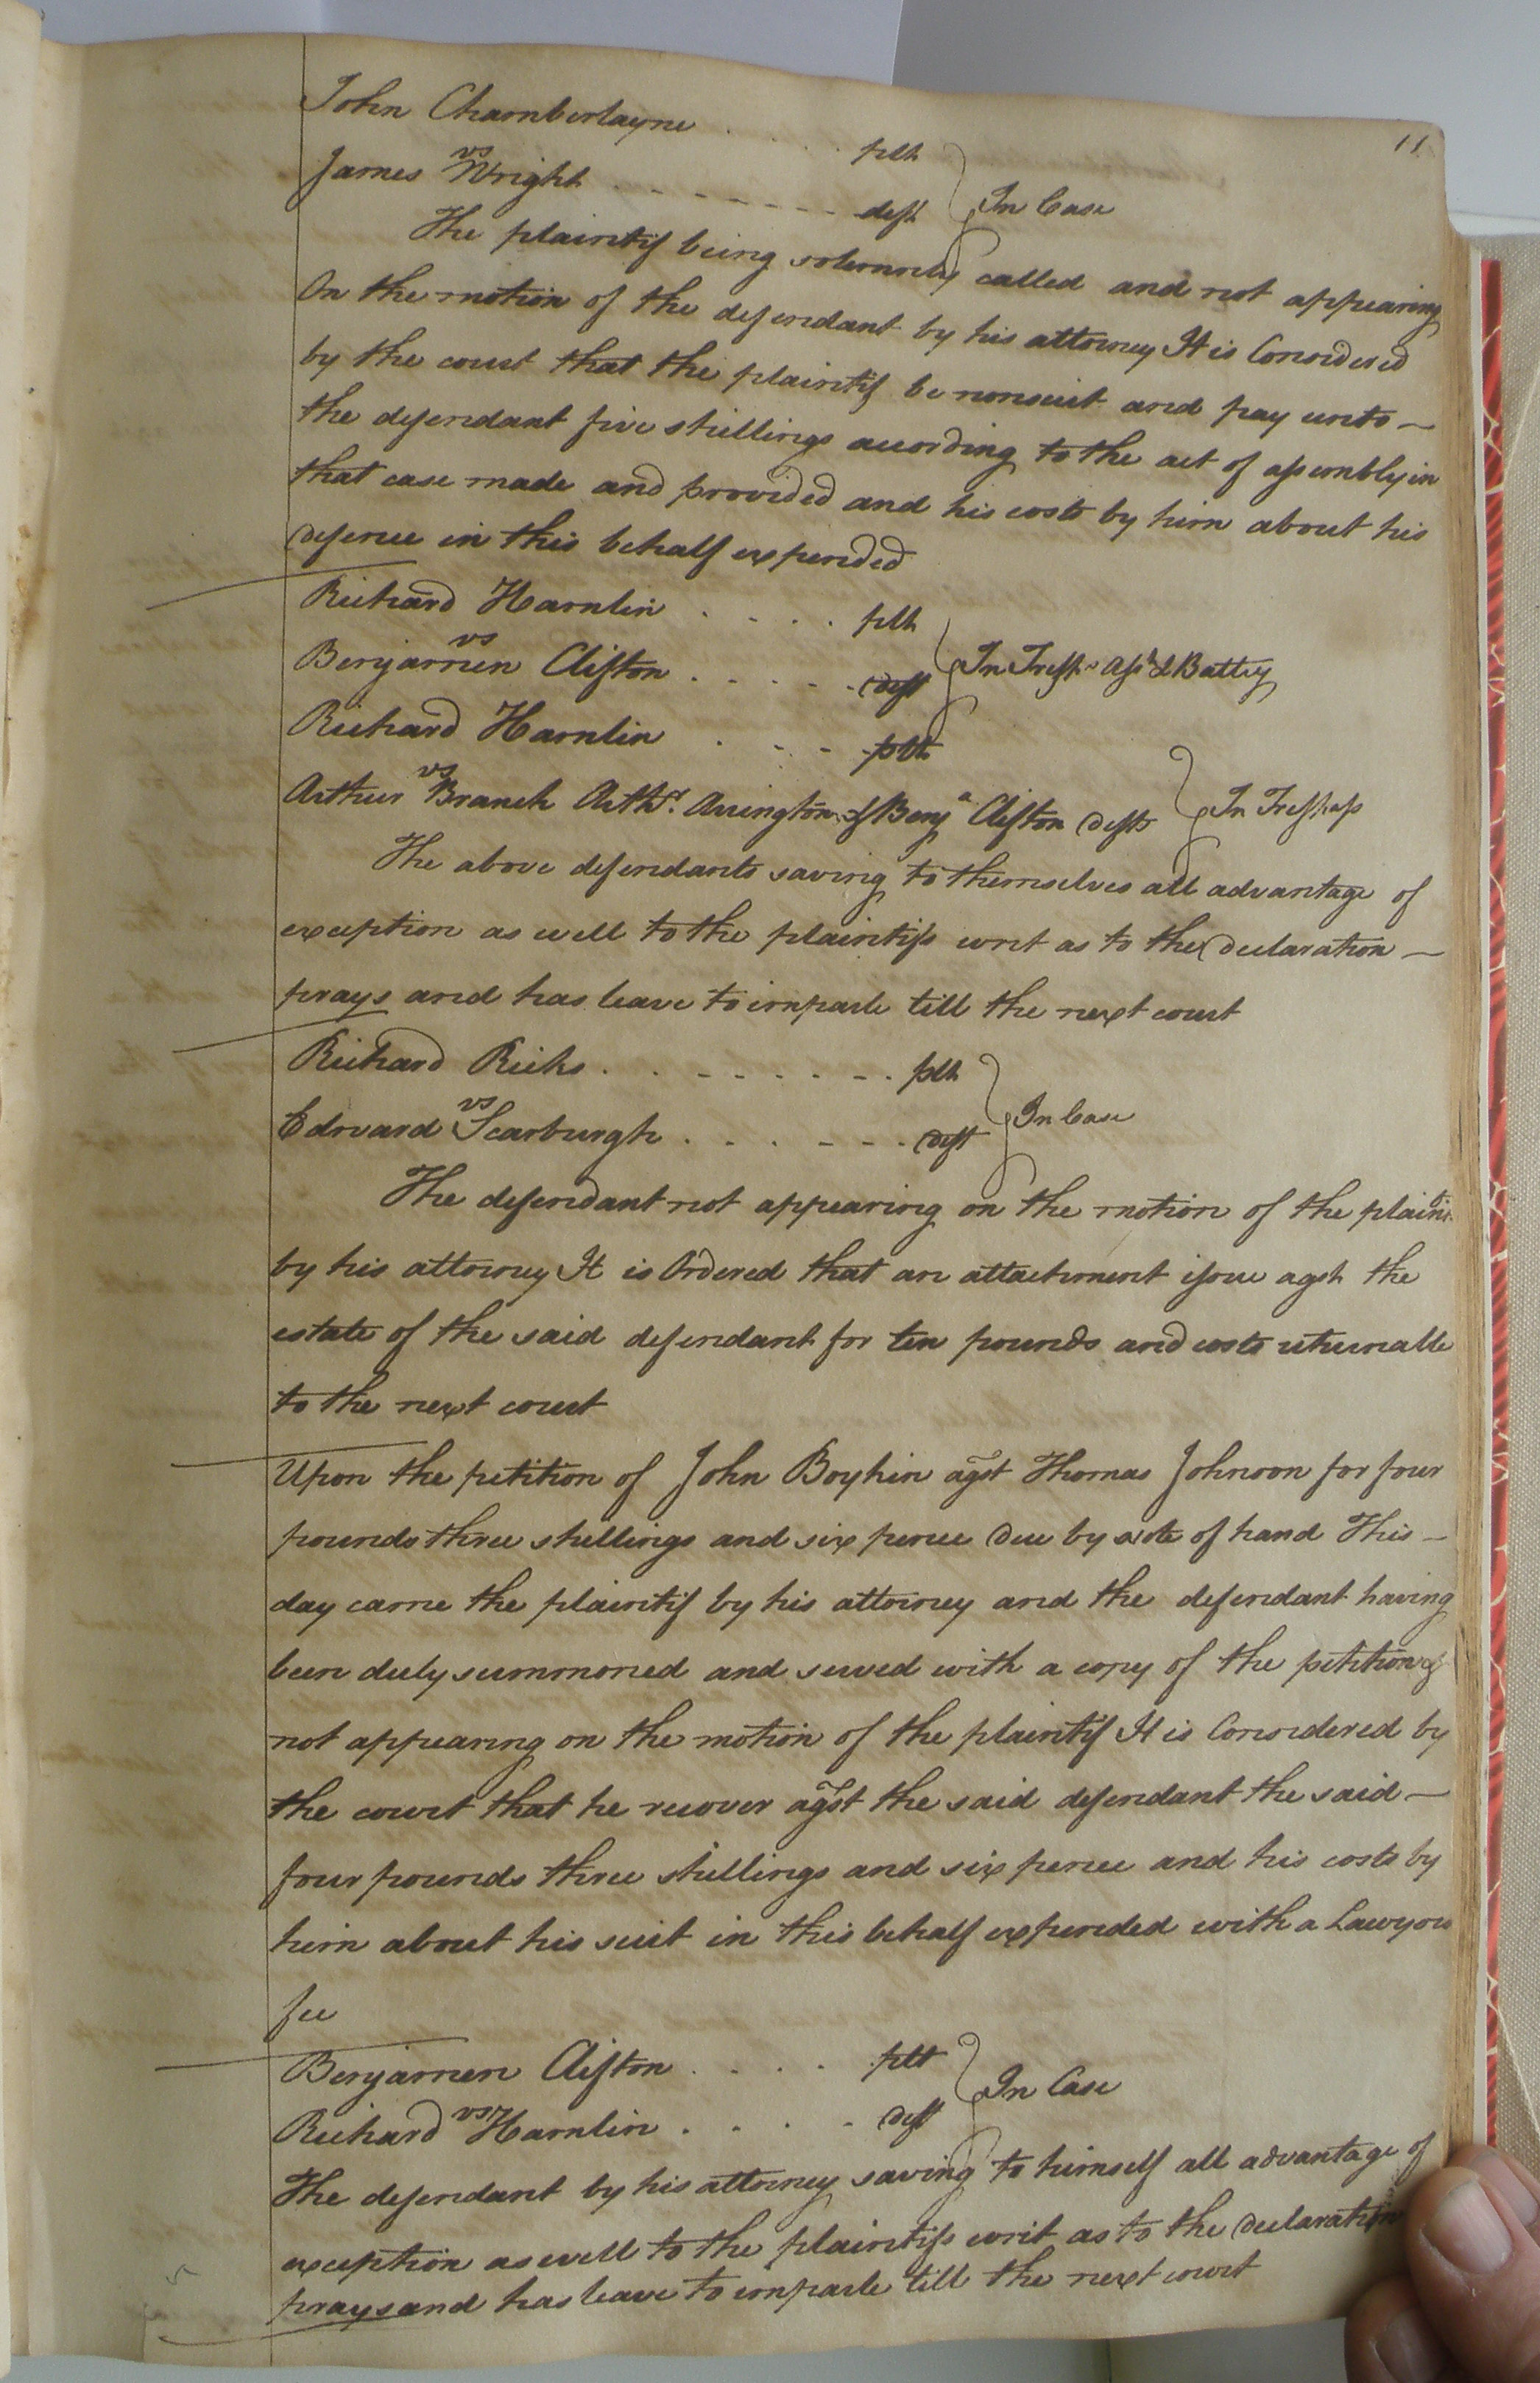 11
John Chamberlayne . . . . . plt
vs
James Wright . - - - - - - - deft } In Case
The plaintif being solemnly called and not appearing
On the motion of the defendant by his attorney It is Considered
by the court that the plaintif be nonsuit and pay unto —
the defendant five shillings according to the act of assembly in
that case made and provided and his costs by him about his
defence in this behalf expended
Richard Hamlin . . . . plt
vs
Benjamen Clifton . . . - - deft } In Tresps. Asst & Battry
Richard Hamlin . . - - plt
vs
Arthur Branch Arthr. Arrington & Benja Clifton defts } In Tresspass
The above defendants saving to themselves all advantage of
exception as well to the plaintifs writ as to the declaration —
prays and has leave to imparle till the next court
Richard Ricks . . - - - - - - . plt
vs
Edward Scarburgh . . . - - - . deft } In Case
The defendant not appearing on the motion of the plainti
by his attorney It is Ordered that an attachment issue agst the
estate of the said defendant for ten pounds and costs returnable
to the next court
Upon the petition of John Boykin agst Thomas Johnson for four
pounds three shillings and six pence due by note of hand This —
day came the plaintif by his attorney and the defendant having
been duly summoned and served with a copy of the petition &
not appearing on the motion of the plaintif It is Considered by
the court that he recover agst the said defendant the said —
four pounds three shillings and six pence and his costs by
him about his suit in this behalf expended with a Lawyers
fee
Benjamen Clifton . . . . plt
vs
Richard Hamlin . . . - deft } In Case
The defendant by his attorney saving to himself all advantage of
exception as well to the plaintifs writ as to the declaration
prays and has leave to imparle till the next court